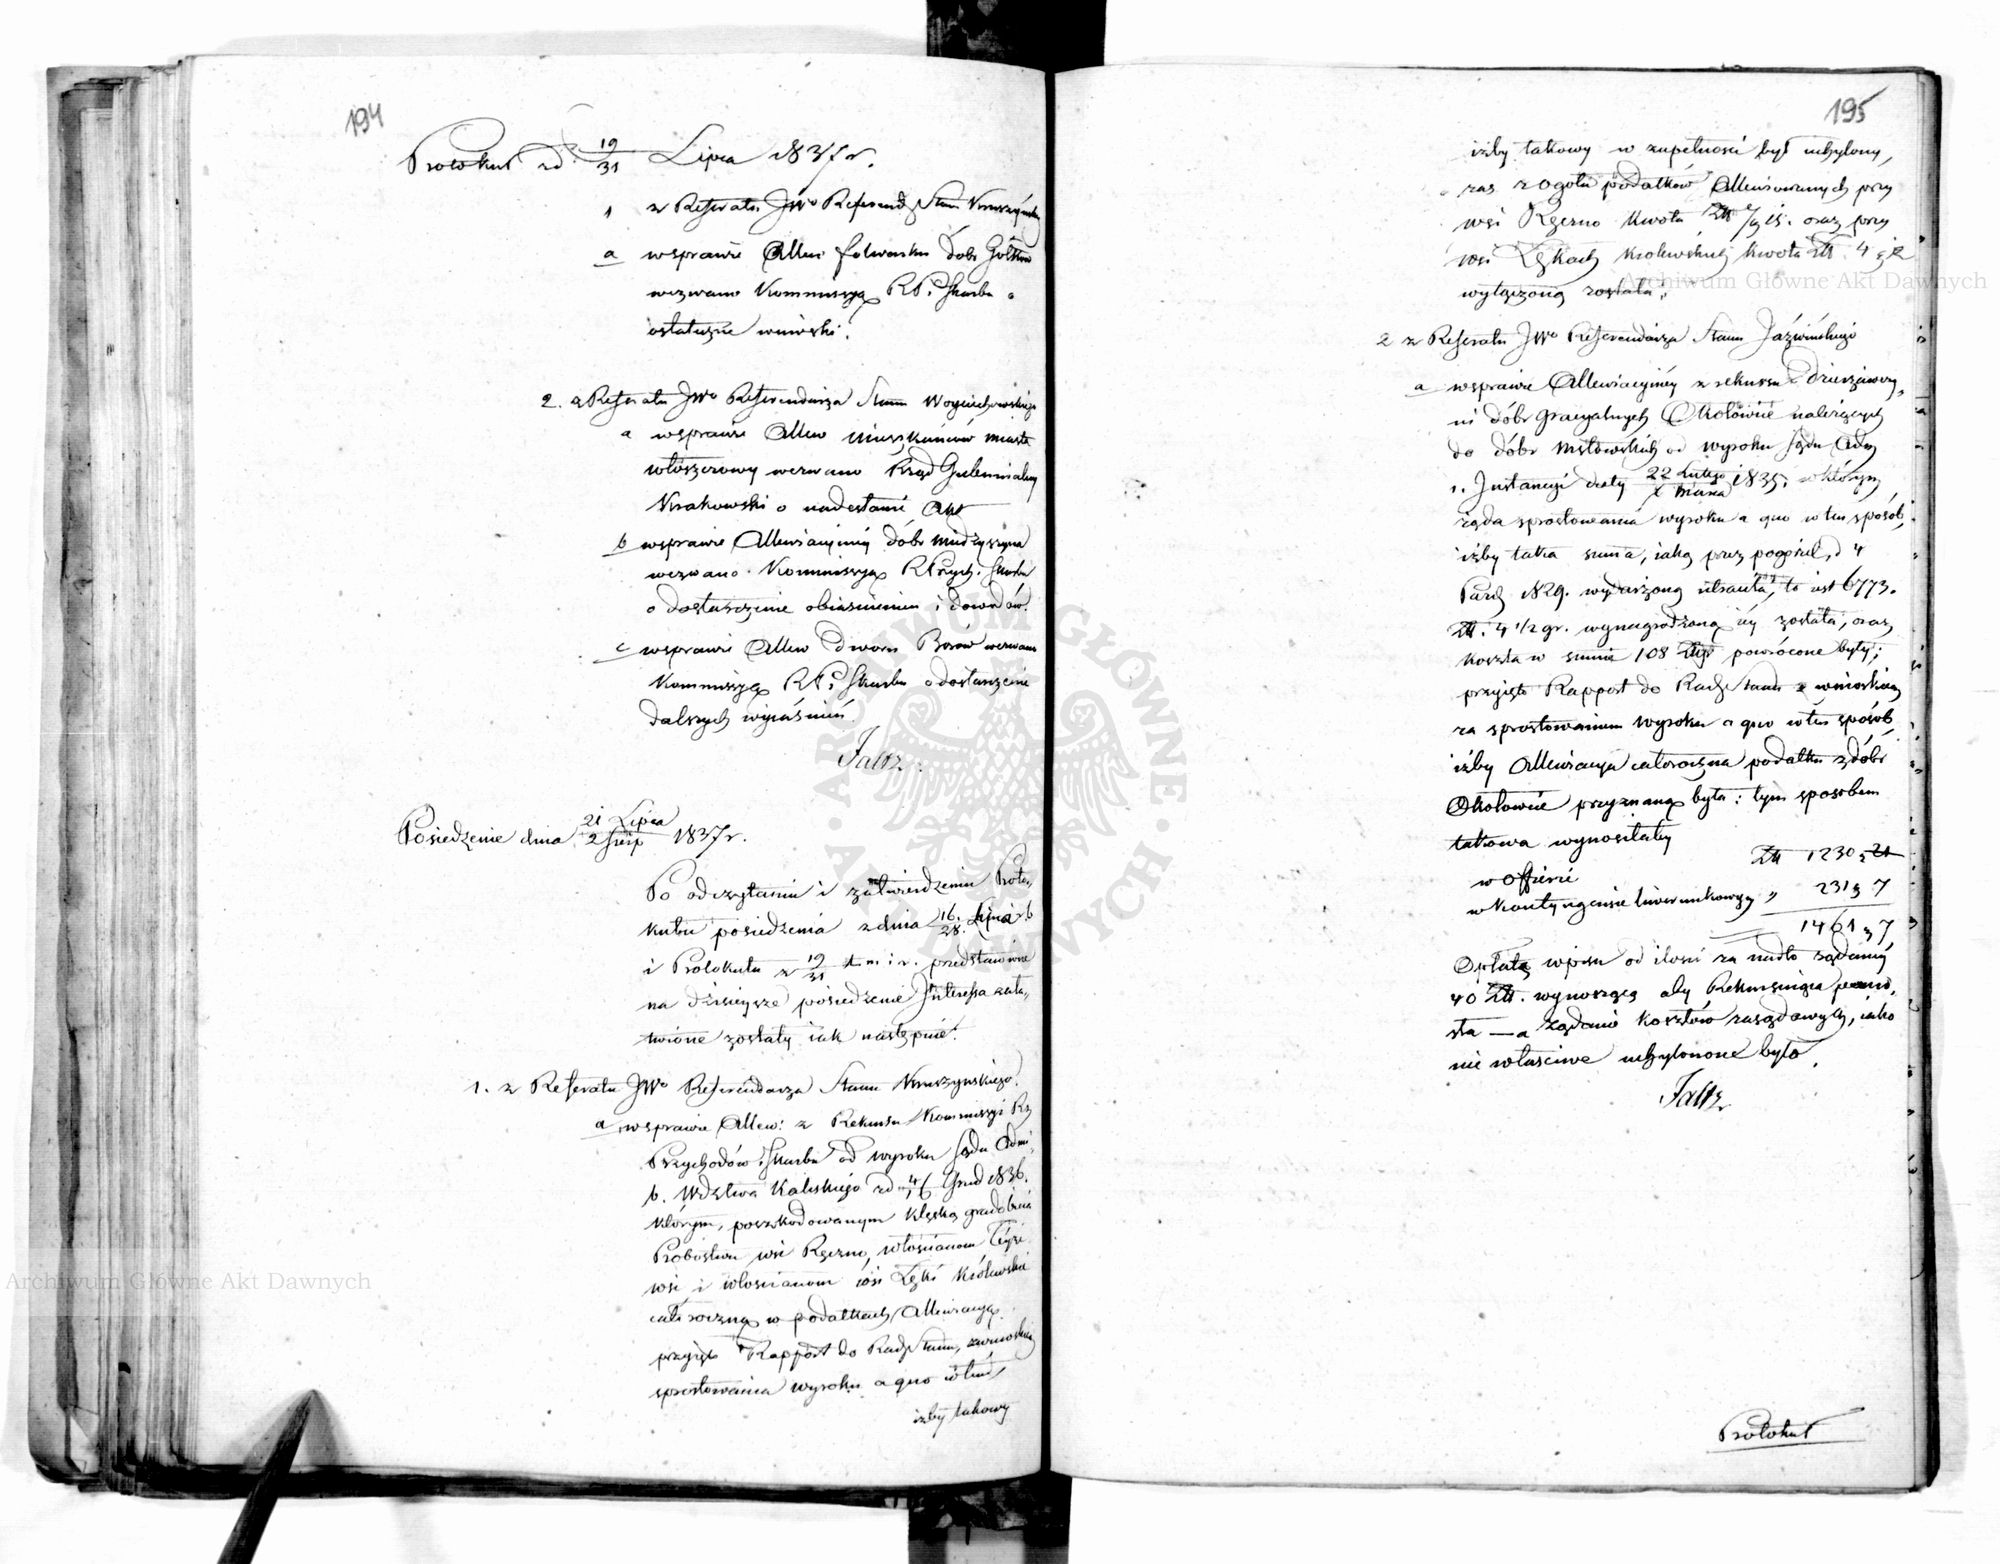 194
Protokuł zd. 19/31 Lipca 1837 r.
1 z Referatu JWo Referend. Stanu Kruszyńskiego
a w sprawie Allew folwarku dóbr
wezwano Kommissyą R. P. i Skarbu o
ostateczne wnioski.
2. z Referatu JWo Referendarza Stanu Woyciechowskiego
a w sprawie Allew mieszkańców miasta
Włoszczowy wezwano Rząd Gubernialny
Krakowski o nadesłanie Akt
b w sprawie Allewiacyiney dóbr Miedzyszyna
wezwano Kommissyą R. Przych. Skarbu
o dostarczenie obiaśnienia i dowodów.
c w sprawie Allew Dworu wezwano
Kommissyą R. P. i Skarbu o dostarczenie
dalszych wyiaśnień.
Faltz
Posiedzenie dnia 21 Lipca/2 Sierp 1837 r.
Po odczytaniu i zatwierdzeniu Proto-
kułu posiedzenia z dnia 16/28 Lipca r. b
i Protokułu z 19/31 t. m. i r. przedstawione
na dzisieysze posiedzenie Interessa zała-
twione zostały iak następuie:
1. z Referatu JWo Referendarza Stanu Kruszyńskiego.
a w sprawie Allew: z Rekursu Kommissyi Rz
Przychodów i Skarbu od wyroku Sądu Admi
b. Wdztwa Kaliskiego zd 4/16 Grud 1836.
którym, poszkodowanym klęską gradobicia
Probostwu wsi Ręczno, włościanom Teyże
wsi i włościanom wsi Łęki Królewskie
całoroczną w podatkach Allewiacyą
przyięto Rapport do Rady Stanu, z wnioskiem
sprostowania wyroku a quo w tem,
iżby takowy
195
iżby takowy w zupełności był uchylony,
zaś z ogółu podatków Allewiowanych przy
wsi Ręczno kwota Zł 15. oraz przy
wsi Łękach Królewskich kwota Zł. 4
wyłączoną została;
2 z Referatu JWo Referendarza Stanu Jaźwińskiego
a w sprawie Allewiacyiney z rekursu Dzierżawcy
dóbr Okołowie należących
do dóbr od wyroku Sądu Adm
1. Instancyi daty 22 Lutego/ Marca 1835; w którym
żąda sprostowania wyroku a quo w ten sposób,
iżby taka suma, iaką przez pogorzel, d 4
Paźdz 1829. wydarzoną utraciła, to iest 6773.
Zł. 4 1/2 gr. wynagrodzoną iey została, oraz
koszta w summie 108 Złp powrócone były;
przyięto Rapport do Rady Stanu z wnioskiem
za sprostowaniem wyroku a quo w ten sposób,
iżby Allewiacya całoroczna podatku z dóbr
Okołowie przyznaną była; tym sposobem
takowa wynosiłaby
w Offierze Zł 1230 21
w Kontyngensie liwerunkowym „ 231 7
1461 7
Opłatę wpisu od ilości za nadto żądaney
40 Zł. wynoszącą aby Rekursuiąca ponio-
sła — a żądanie kosztów zasądowych, iako
nie właściwe uchylone było.
Faltz
Protokuł
Archiwum Główne Akt Dawnych
Archiwum Główne Akt Dawnych
ARCHIWUM GŁÓWNE AKT DAWNYCH